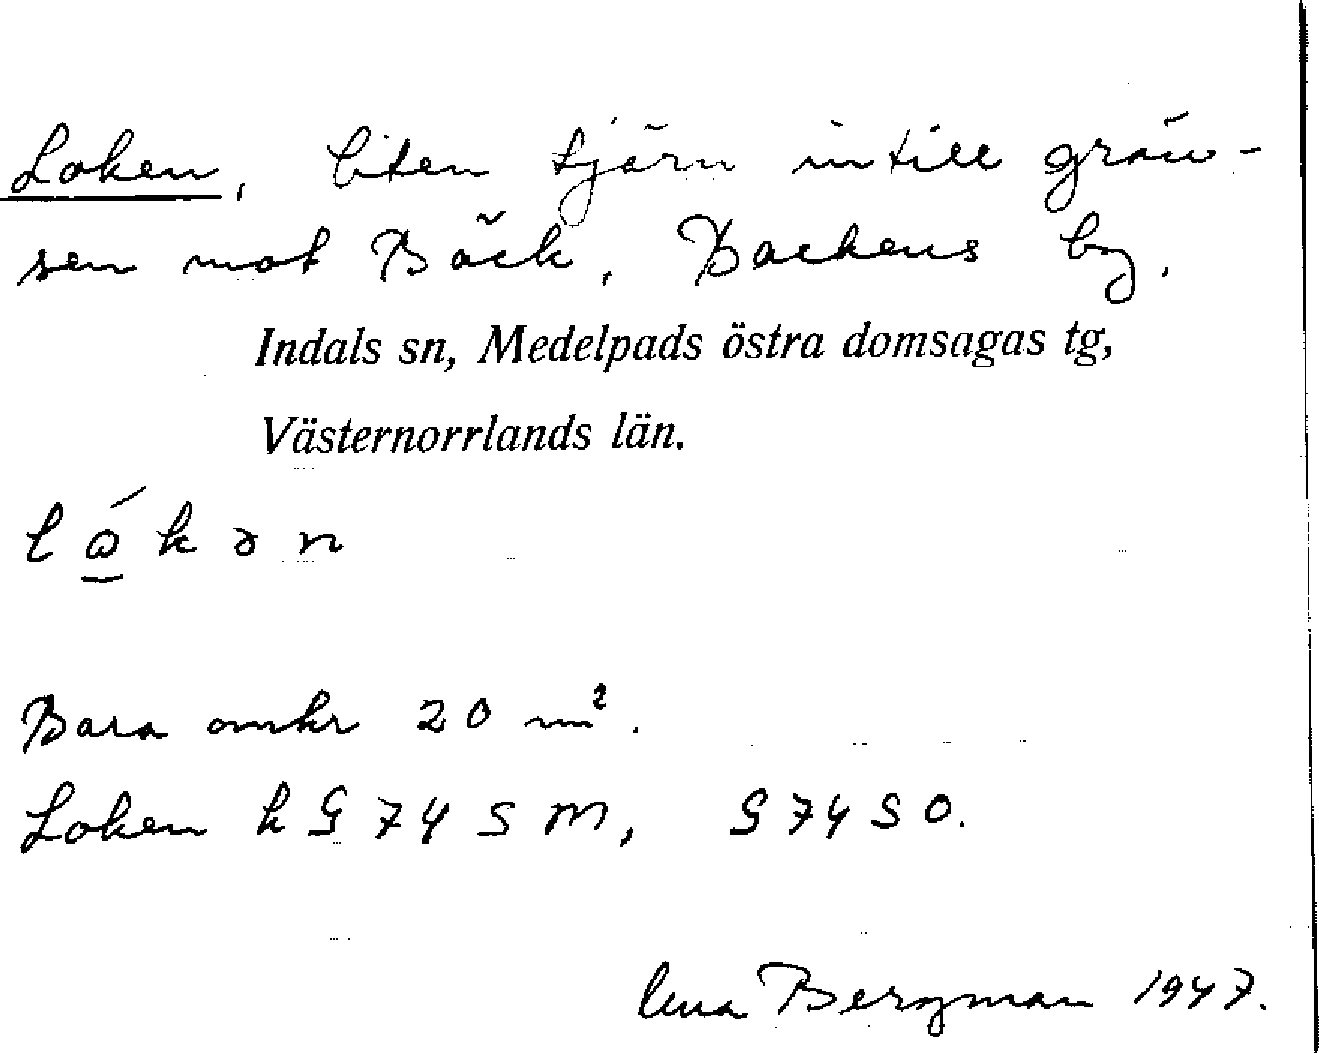 Loken, liten tjärn intill grän-
sen mot Bäck, Backens by.
Indals sn, Medelpads östra domsagas tg,
Västernorrlands län.
Bara omkr 20 m².
Loken k G 74 S M, G 74 S O.
Bergman 1947.